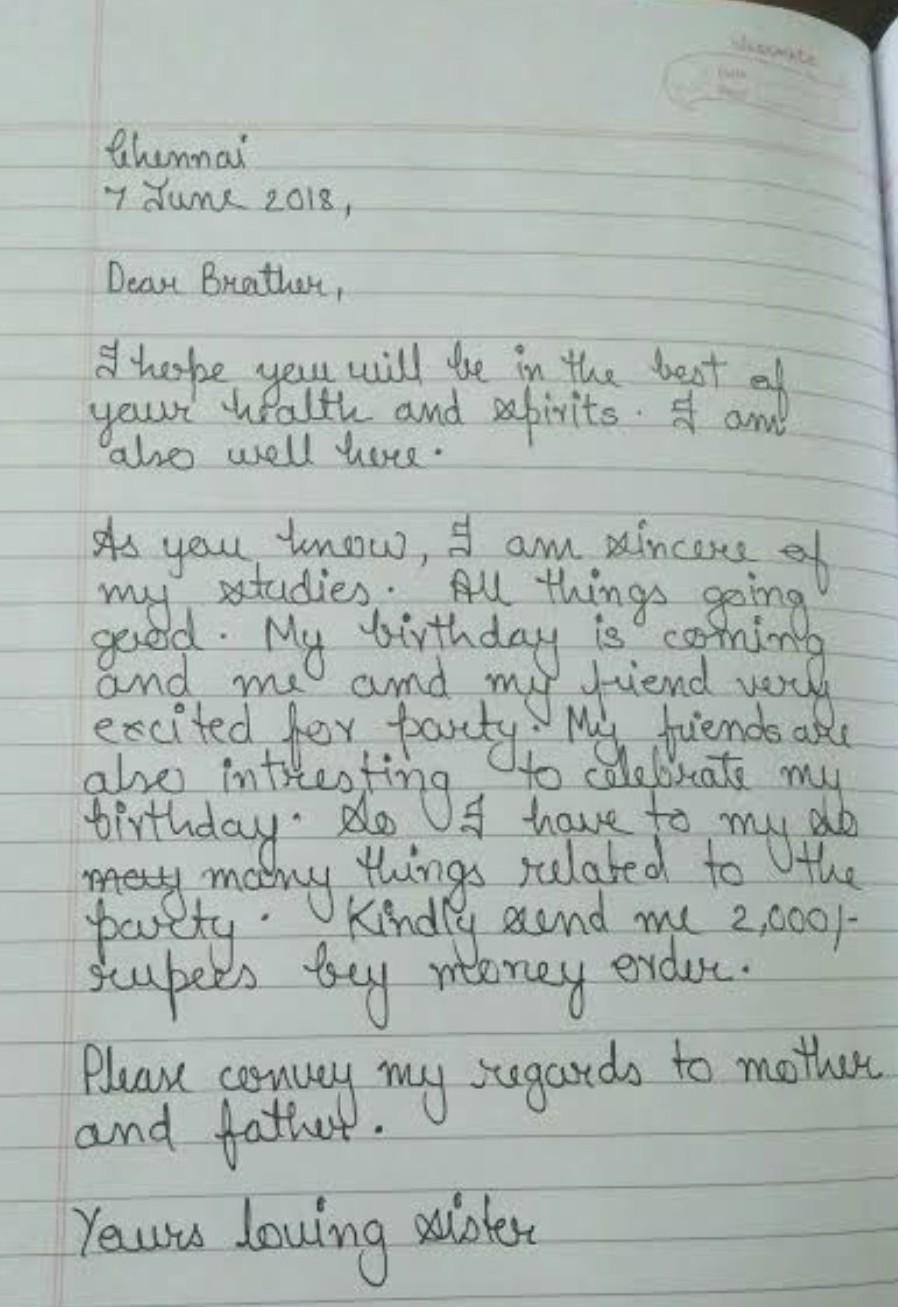 Classmate
Date
Page
Chennai
7 June 2018,
Dear Brother,
I hope you will be in the best of
your health and spirits. I am
also well here.
As you know, I am sincere of
my studies. All things going
good. My birthday is coming
and me amd my friend very
excited for party. My friends are
also intresting to celebrate my
birthday. So I have to my so
may many things related to the
party. Kindly send me 2,000/-
rupees by money order.
Please convey my regards to mother
and father.
Yours loving sister